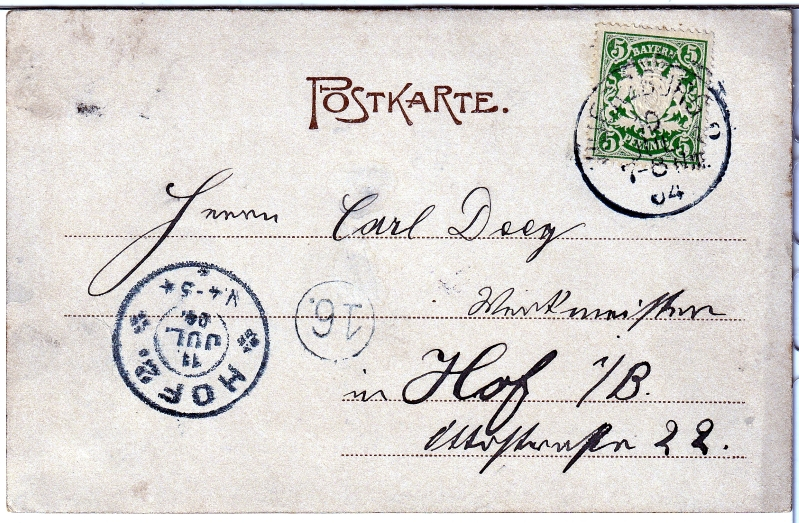 5 BAYERN 5
5 PFENNIG 5
POSTKARTE.
7-8 NM.
04
Herrn Carl
Werkmeister
in Hof i/B.
Ottostraße 22.
16.
HOF 2.
11.
JUL
04.
V.4-5